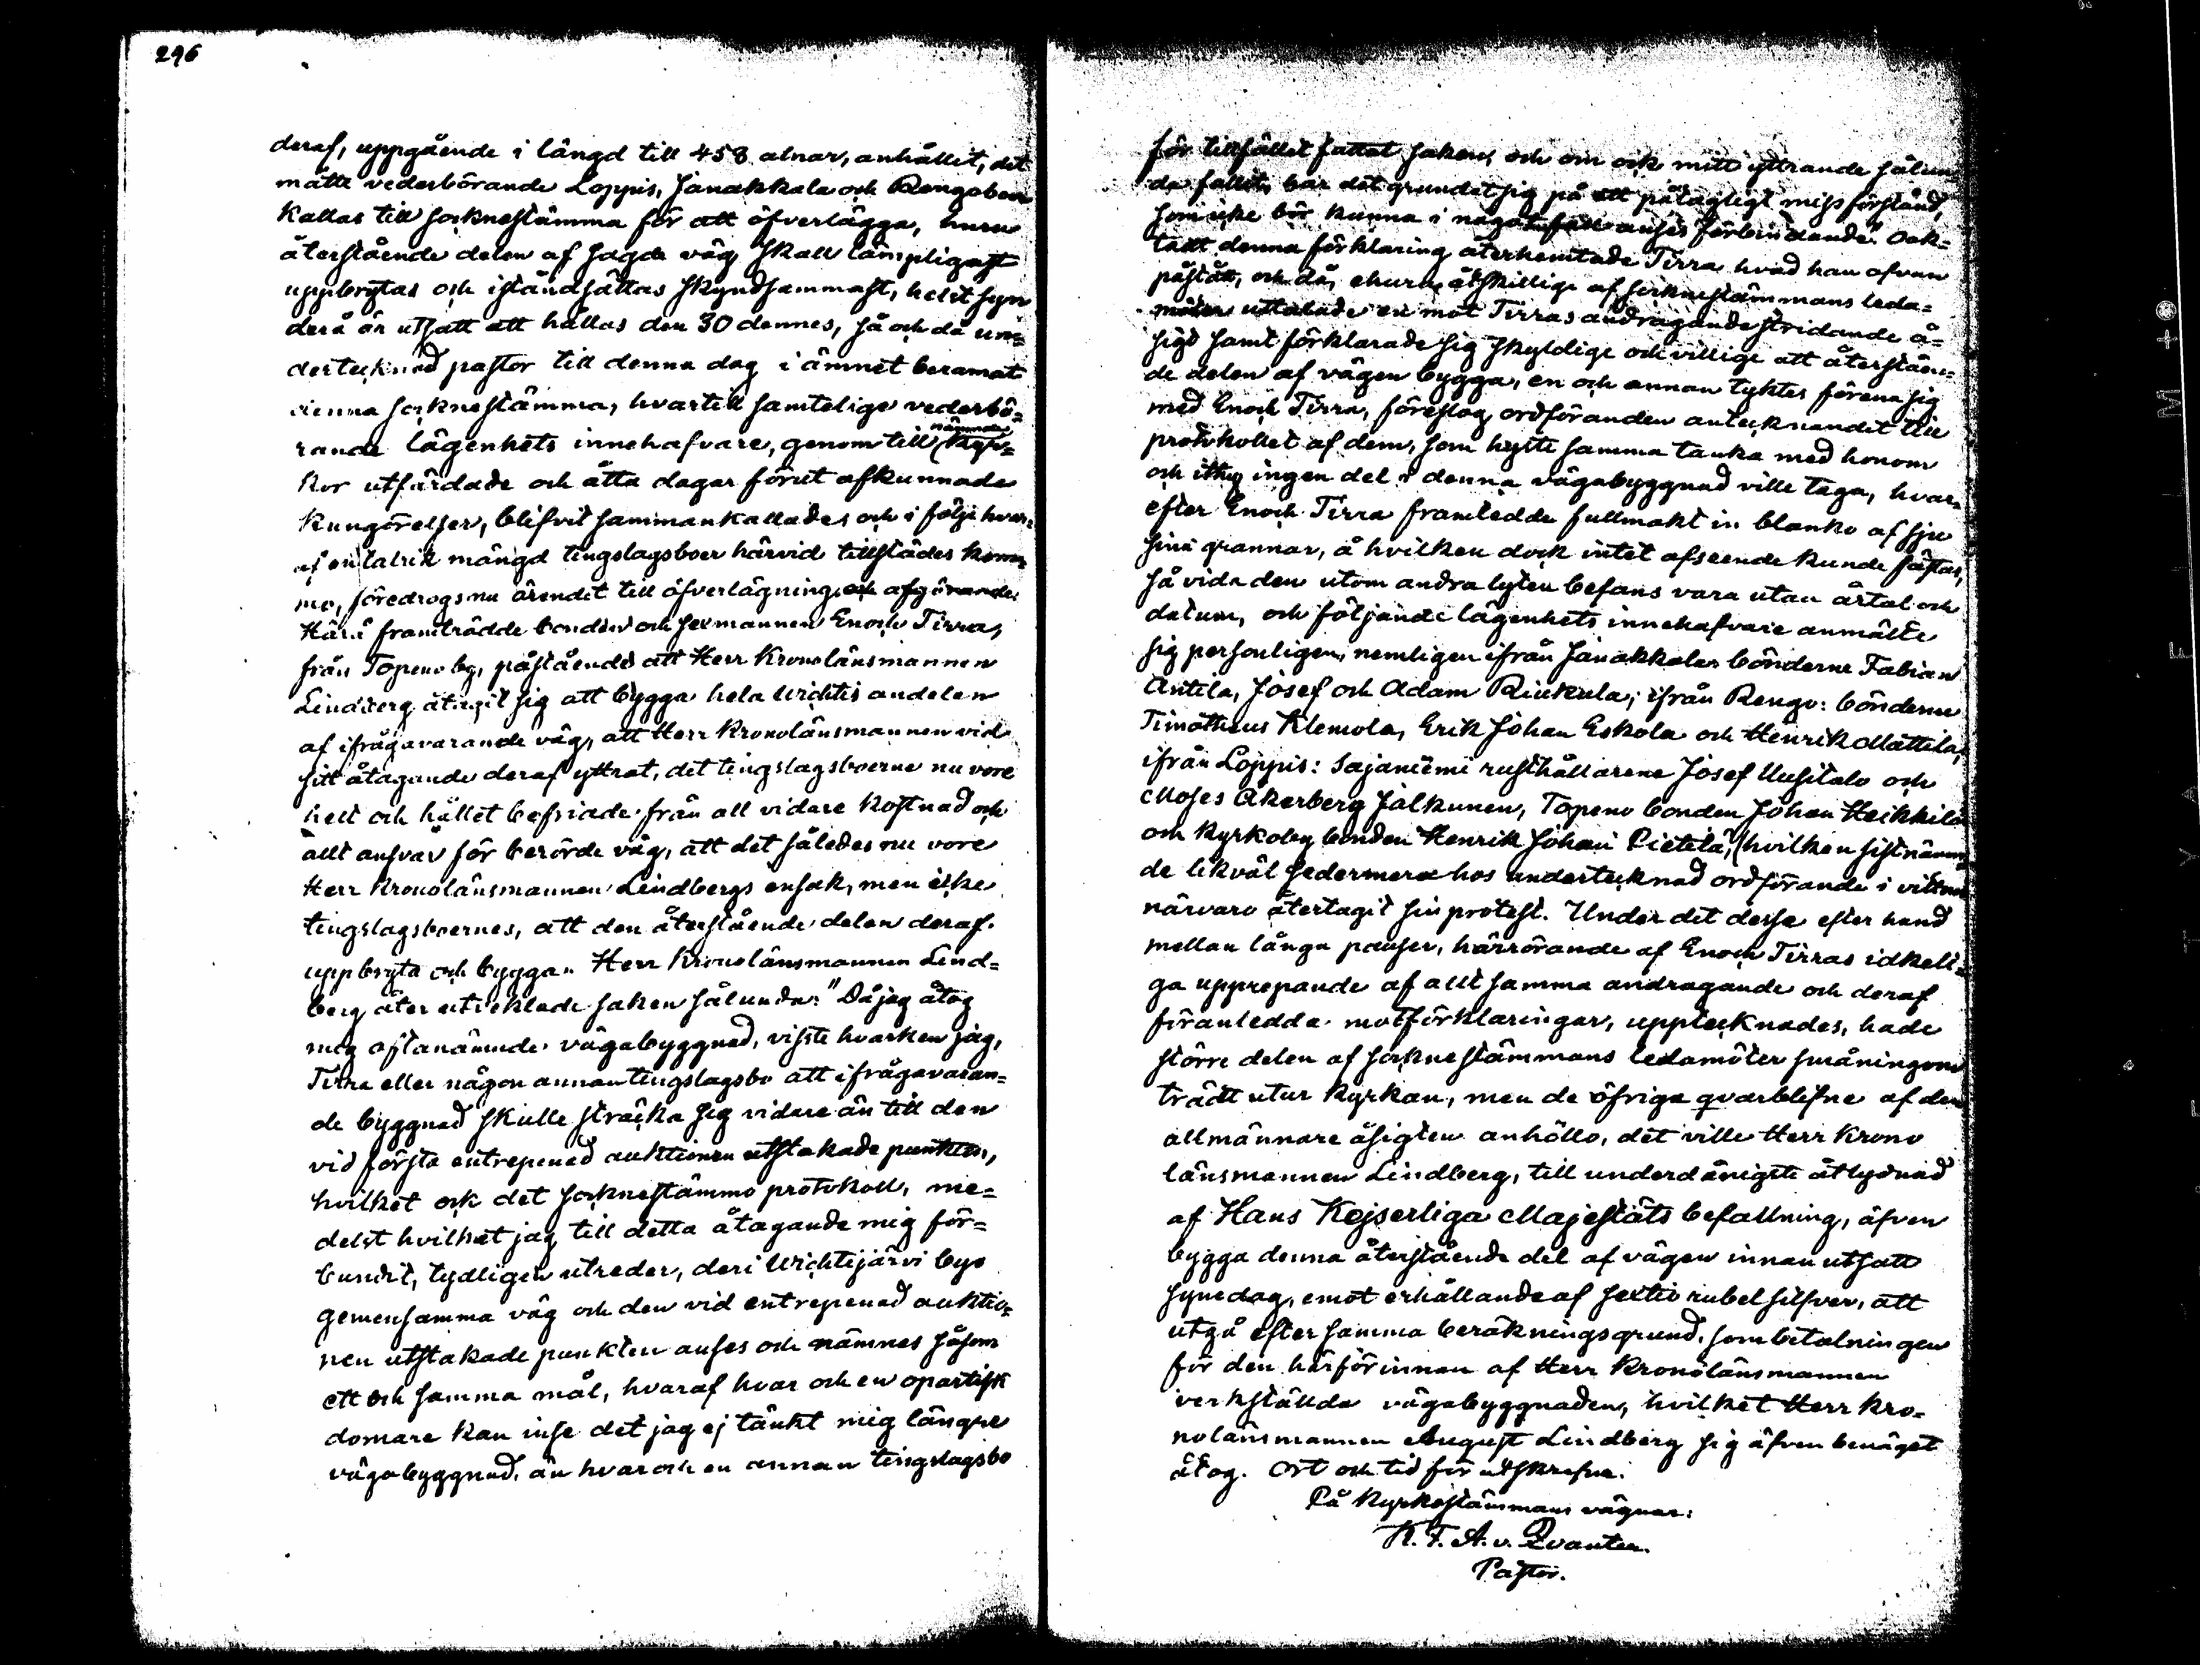 296
deraf, uppgående i längd till 458 alnar, anhållit, det
måtte vederbörande Loppis, Janakkala och Rengoboer
kallas till socknestämma för att öfverlägga, huru
återstående delen af sagde väg skall lämpligast
uppbrytas och iståndsättas skyndsammast, helst syn
derå är utsatt att hållas den 30 dennes, så och då un=
dertecknad pastor till denna dag i ämnet beramat
denna socknestämma, hvartill samtelige vederbö=
rande lägenhets innehafvare, genom till nämnde kyr=
kor utfärdade och åtta dagar förut afkunnade
kungörelser, blifvit sammankallades och i följe hvar=
af en talrik mängd tingslagsboer härvid tillstädes kom=
mo, föredrogs nu ärendet till öfverläggning och afgörande.
Härå framträdde bonden och sexmannen Enoch Tirra,
från Topeno by, påstående att Herr Kronolänsmannen
Lindberg åtagit sig att bygga hela Wichtis andelen
af ifrågavarande väg, att Herr Kronolänsmannen vid
sitt åtagande deraf yttrat, det tingslagsboerne nu vore
helt och hållet befriade från all vidare kostnad och
allt ansvar för berörde väg, att det således nu vore
Herr Kronolänsmannen Lindbergs ensak, men icke
tingslagsboernes, att den återstående delen deraf
uppbryta och bygga. Herr Kronolänsmannen Lind=
berg åter utvecklade saken sålunda: "Då jag åtog
mig oftanämnde vägabyggnad, visste hvarken jag,
Tirra eller någon annan tingslagsbo att ifrågavaran=
de byggnad skulle sträcka sig vidare än till den
vid första entrepenad auktionen utstakade punkten,
hvilket ock det sockneståmmo protokoll, me=
delst hvilket jag till detta åtagande mig för=
bundit, tydligen utreder, deri Wichtijärvi bys
gemensamma väg och den vid entrepenad auktio=
nen utstakade punkten anses och nämnes såsom
ett och samma mål, hvaraf hvar och en opartisk
domare kan inse det jag ej tänkt mig längre
vägabyggnad, än hvar och en annan tingslagsbo
för tillfället fattat saken, och om ock mitt yttrande sålun=
da fallit, bär det grundat sig på ett påtagligt missförstånd,
som icke bör kunna i något fall anses förbindande." Oak=
tadt denna förklaring återhemtade Tirra hvad han ofvan
påstått, och då, ehuru åtskillige af sockneståmmans leda=
möter uttalade en mot Tirras andragande stridande å=
sigt samt förklarade sig skyldige och villige att återståen=
de delen af vägen bygga, en och annan tyktes förena sig
med Enoch Tirra, föreslog ordföranden antecknandet till
protokollet af dem, som hyste samma tanka med honom
och ithy ingen del i denna vägabyggnad ville taga, hvar=
efter Enoch Tirra framledde fullmakt in blanko af sju
sina grannar, å hvilken dock intet afseende kunde fästas,
så vida den utom andra lyten befans vara utan årtal och
datum, och följande lägenhets innehafvare anmälte
sig personligen, nemligen ifrån Janakkala bönderne Fabian
Antila, Josef och Adam Riukula; ifrån Rengo: bönderne
Timotheus Klemola, Erik Johan Eskola och Henrik Mattila,
ifrån Loppis: Sajaniemi rusthållarene Josef Uusitalo och
Moses Åkerberg Jälkunen, Topeno bonden Johan Heikkilä
och Kyrkoby bonden Henrik Johan Pietilä, (hvilken sistnämn=
de likväl sedermera hos undertecknad ordförande i vittnes
närvaro återtagit sin protest. Under det desse efter hand
mellan långa pauser, härrörande af Enoch Tirras idkeli=
ga upprepande af allt samma andragande och deraf
föranledda motförklaringar, upptecknades, hade
större delen af socknestämmans ledamöter småningom
trädt utur kyrkan, men de öfriga qvarblefne af den
allmännare åsigten anhöllo, det ville Herr Krono
länsmannen Lindberg, till underdånigste åtlydnad
af Hans Kejserliga Majestäts befallning, äfven
bygga denna återstående del af vägen innan utsatt
synedag, emot erhållande af sextio rubel silfver, att
utgå efter samma beräkningsgrund, som betalningen
för den härförinnan af Herr Kronolänsmannen
verkställda vägabyggnaden, hvilket Herr Kro=
nolänsmannen August Lindberg sig äfven benäget
åtog. Ort och tid förutskrefne.
På Kyrkostämmans vägnar:
K. F. A. v. Qvanten.
Pastor.